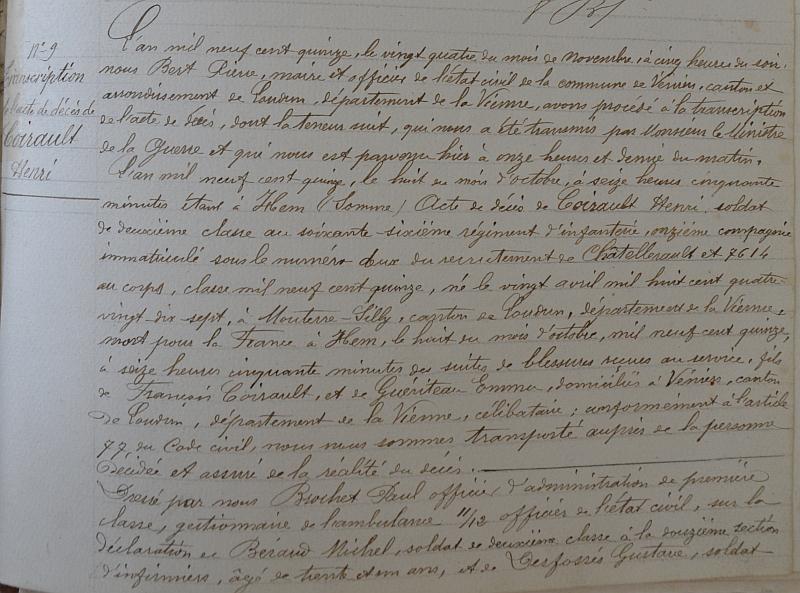 N° 9
Transcription
de l'acte de décès de
Coirault
Henri
L'an mil neuf cent quinze, le vingt quatre du mois de Novembre, à cinq heures du soir,
nous Bert Pierre, maire et officier de l'état civil de la commune de Vénien, canton et
arrondissement de Loudun, département de la Vienne, avons procédé à la transcription
de l'acte de décès, dont la teneur suit, qui nous a été transmis par Monsieur le Ministre
de la Guerre et qui nous est parvenu hier à onze heures et demie du matin.
L'an mil neuf cent quinze, le huit du mois d'octobre, à seize heures cinquante
minutes étant à Hem (Somme) Acte de décès de Coirault Henri, soldat
de deuxième classe au soixante-sixième régiment d'infanterie, onzième compagnie
immatriculé sous le numéro deux du recrutement de Châtellerault et 7614
au corps, classe mil neuf cent quinze, né le vingt avril mil huit cent quatre
vingt dix-sept, à Mouterre-Silly, canton de Loudun, département de la Vienne,
mort pour la France à Hem, le huit du mois d'octobre, mil neuf cent quinze,
à seize heures cinquante minutes des suites de blessures reçues au service, fils
de François Coirault, et de Guériteau Emma, domiciliés à Vénien, canton
de Loudun, département de la Vienne, célibataire; conformément à l'article
77 du Code civil, nous nous sommes transporté auprès de la personne
décédée et assuré de la réalité du décès.
Dressé par nous Brochet Paul officier d'administration de première
classe, gestionnaire de l'ambulance 11/12 officier de l'état civil, sur la
déclaration de Béraud Michel, soldat de deuxième classe à la douzième section
d'infirmiers, âgé de trente et un ans, et de Desfossés Gustave, soldat